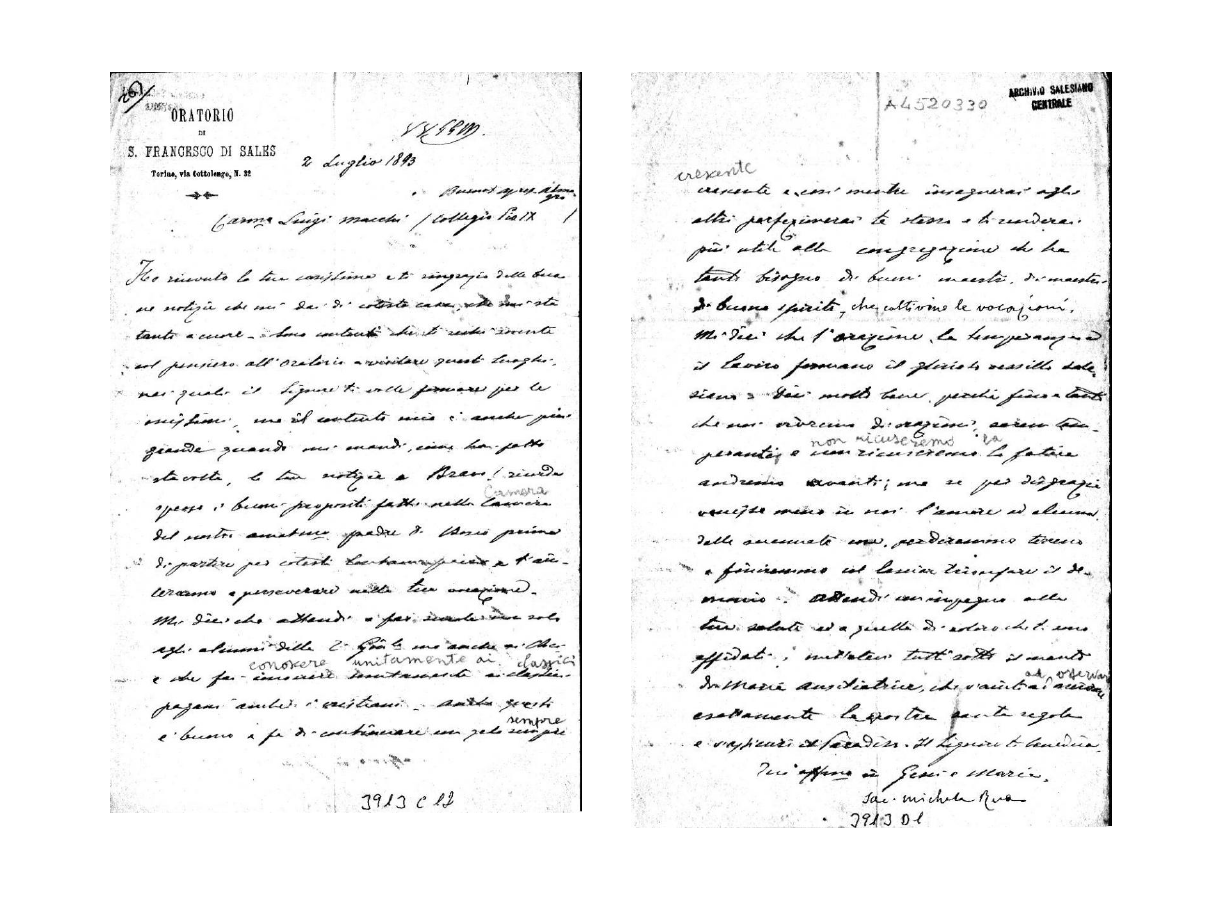 267
ORATORIO
DI
S. FRANCESCO DI SALES
Torino, via Cottolengo, N. 32
V.V.GG.M.
2 Luglio 1893
Buenos Ayres. Alma
gro
Car.mo Luigi Macchi / Collegio Pio IX /
Ho ricevuto la tua carissima e ti ringrazio delle buo
ne notizie che mi dai di cotesta casa, che mi sta
tanto a cuore. Sono contento che ti rechi sovente
col pensiero all'Oratorio a visitare questi luoghi,
nei quali il Signore ti volle formare per le
missioni, ma il contento mio è anche più
grande quando mi mandi, come hai fatto
sta volta, le tue notizie. Bravo! ricorda
Camera
spesso i buoni propositi fatti nella camera
del nostro amatmo padre D. Bosco prima
di partire per coteste e t'aiu-
teranno a perseverare nella tua vocazione.
Mi dici che attendi a far scuola non solo
agli alunni della ma anche ai Chci
conoscere unitamente ai classici
e che fai conoscere unitamente ai classici
pagani anche i cristiani. Anche questo
sempre
è buono e fa di continuare con zelo sempre
3913 C 12
A4520330
ARCHIVIO SALESIANO
CENTRALE
crescente
crescente e così mentre insegnerai agli
altri perfezionerai te stesso e ti renderai
più utile alla congregazione che ha
tanto bisogno di buoni maestri, di maestri
di buono spirito, che coltivino le vocazioni.
Mi dici che l'orazione, la temperanza ed
il lavoro formano il glorioso vessillo sale
siano. Dici molto bene, perchè fino a tanto
che noi vivremo di orazione, saremo tem-
non ricuseremo la
peranti, e non ricuseremo la fatica
andremo avanti; ma se per disgrazia
venisse meno in noi l'amore ad alcuna
delle accennate cose, perderemmo terreno
e finiremmo col lasciar trionfare il de-
monio. Attendi con impegno alla
tua salute ed a quella di coloro che ti sono
affidati; mettetevi tutti sotto il manto
ad osservare
di Maria Ausiliatrice, che v'aiuti ad osservare
esattamente la vostra santa regola
e v'assicuri il Paradiso. Il Signore ti benedica.
Tuo affmo in Gesù e Maria,
Sac. Michele Rua
3913 D1